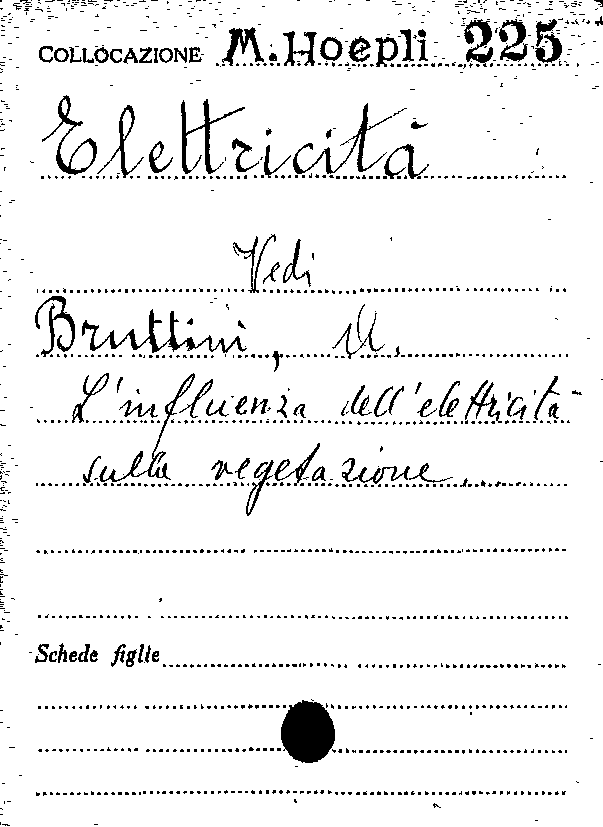 COLLOCAZIONE M. Hoepli 225
Elettricità
Vedi
Bruttini, A.
L'influenza dell'elettricità
sulla vegetazione...
Schede figlie